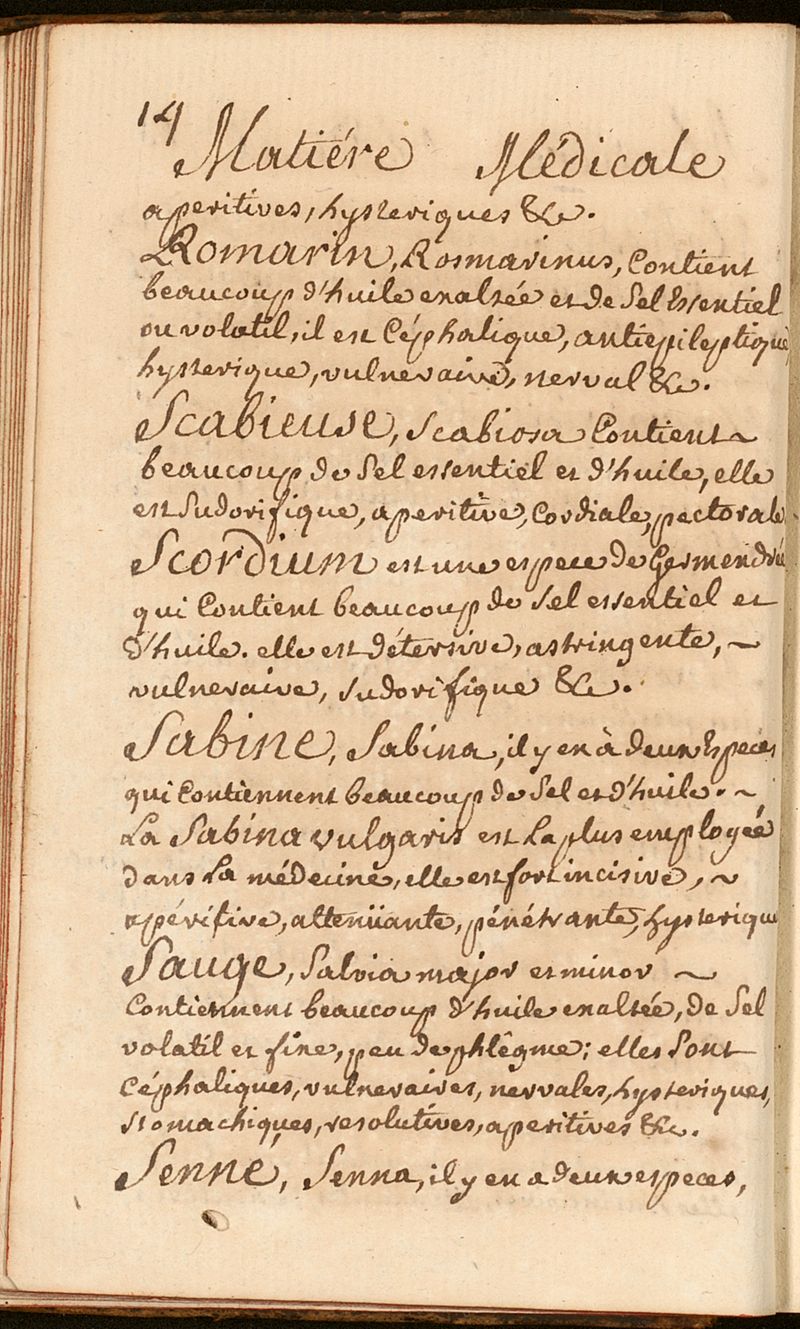 14
Matiére Médicale
aperitives, hysteriques &c.
Romarin, Rosmarinus, Contient
beaucoup d'huile exaltée et de Sel Essentiel
ou volatil, il est Céphalique, antiepileptique,
hysterique, vulneraire, nerval &c.
Scabieuse, Scabiosa Contient ~
beaucoup de Sel essentiel et d'huile, elle
est Sudorifique, aperitive, Cordiale, pectorale
Scordium est une espece de Germendrée
qui Contient beaucoup de Sel essentiel et
d'huile. elle est détersive, astringente, ~
vulneraire, Sudorifique &c.
Sabine, Sabina, il y en à deux Especes
qui Contiennent beaucoup de Sel et d'huile. ~
La Sabina vulgaris est La plus employée
dans La médecine, elle est fort incisive, ~
apéritive, attenüante, pénétrante, hysterique
Sauge, Salvia major et minor ~
Contiennent beaucoup d'huile exaltée, de Sel
volatil et fixe, peu de phlêgme; elles Sont
Céphaliques, vulneraires, nervales, hysteriques,
Stomachiques, resolutives, aperitives &c.
Senné, Senna, il y en a deux especes,